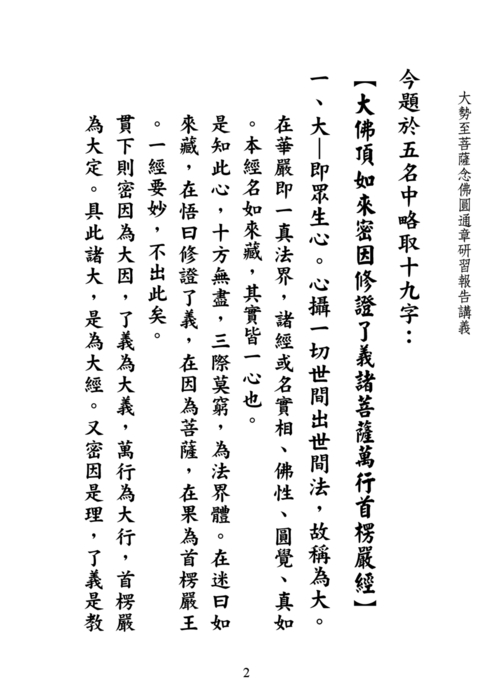 大勢至菩薩念佛圓通章研習報告講義
今題於五名中略取十九字：
【大佛頂如來密因修證了義諸菩薩萬行首楞嚴經】
一、大—即眾生心。心攝一切世間出世間法，故稱為大。
在華嚴即一真法界，諸經或名實相、佛性、圓覺、真如
。本經名如來藏，其實皆一心也。
是知此心，十方無盡，三際莫窮，為法界體。在迷曰如
來藏，在悟曰修證了義，在因為菩薩，在果為首楞嚴王
。一經要妙，不出此矣。
貫下則密因為大因，了義為大義，萬行為大行，首楞嚴
為大定。具此諸大，是為大經。又密因是理，了義是教
2